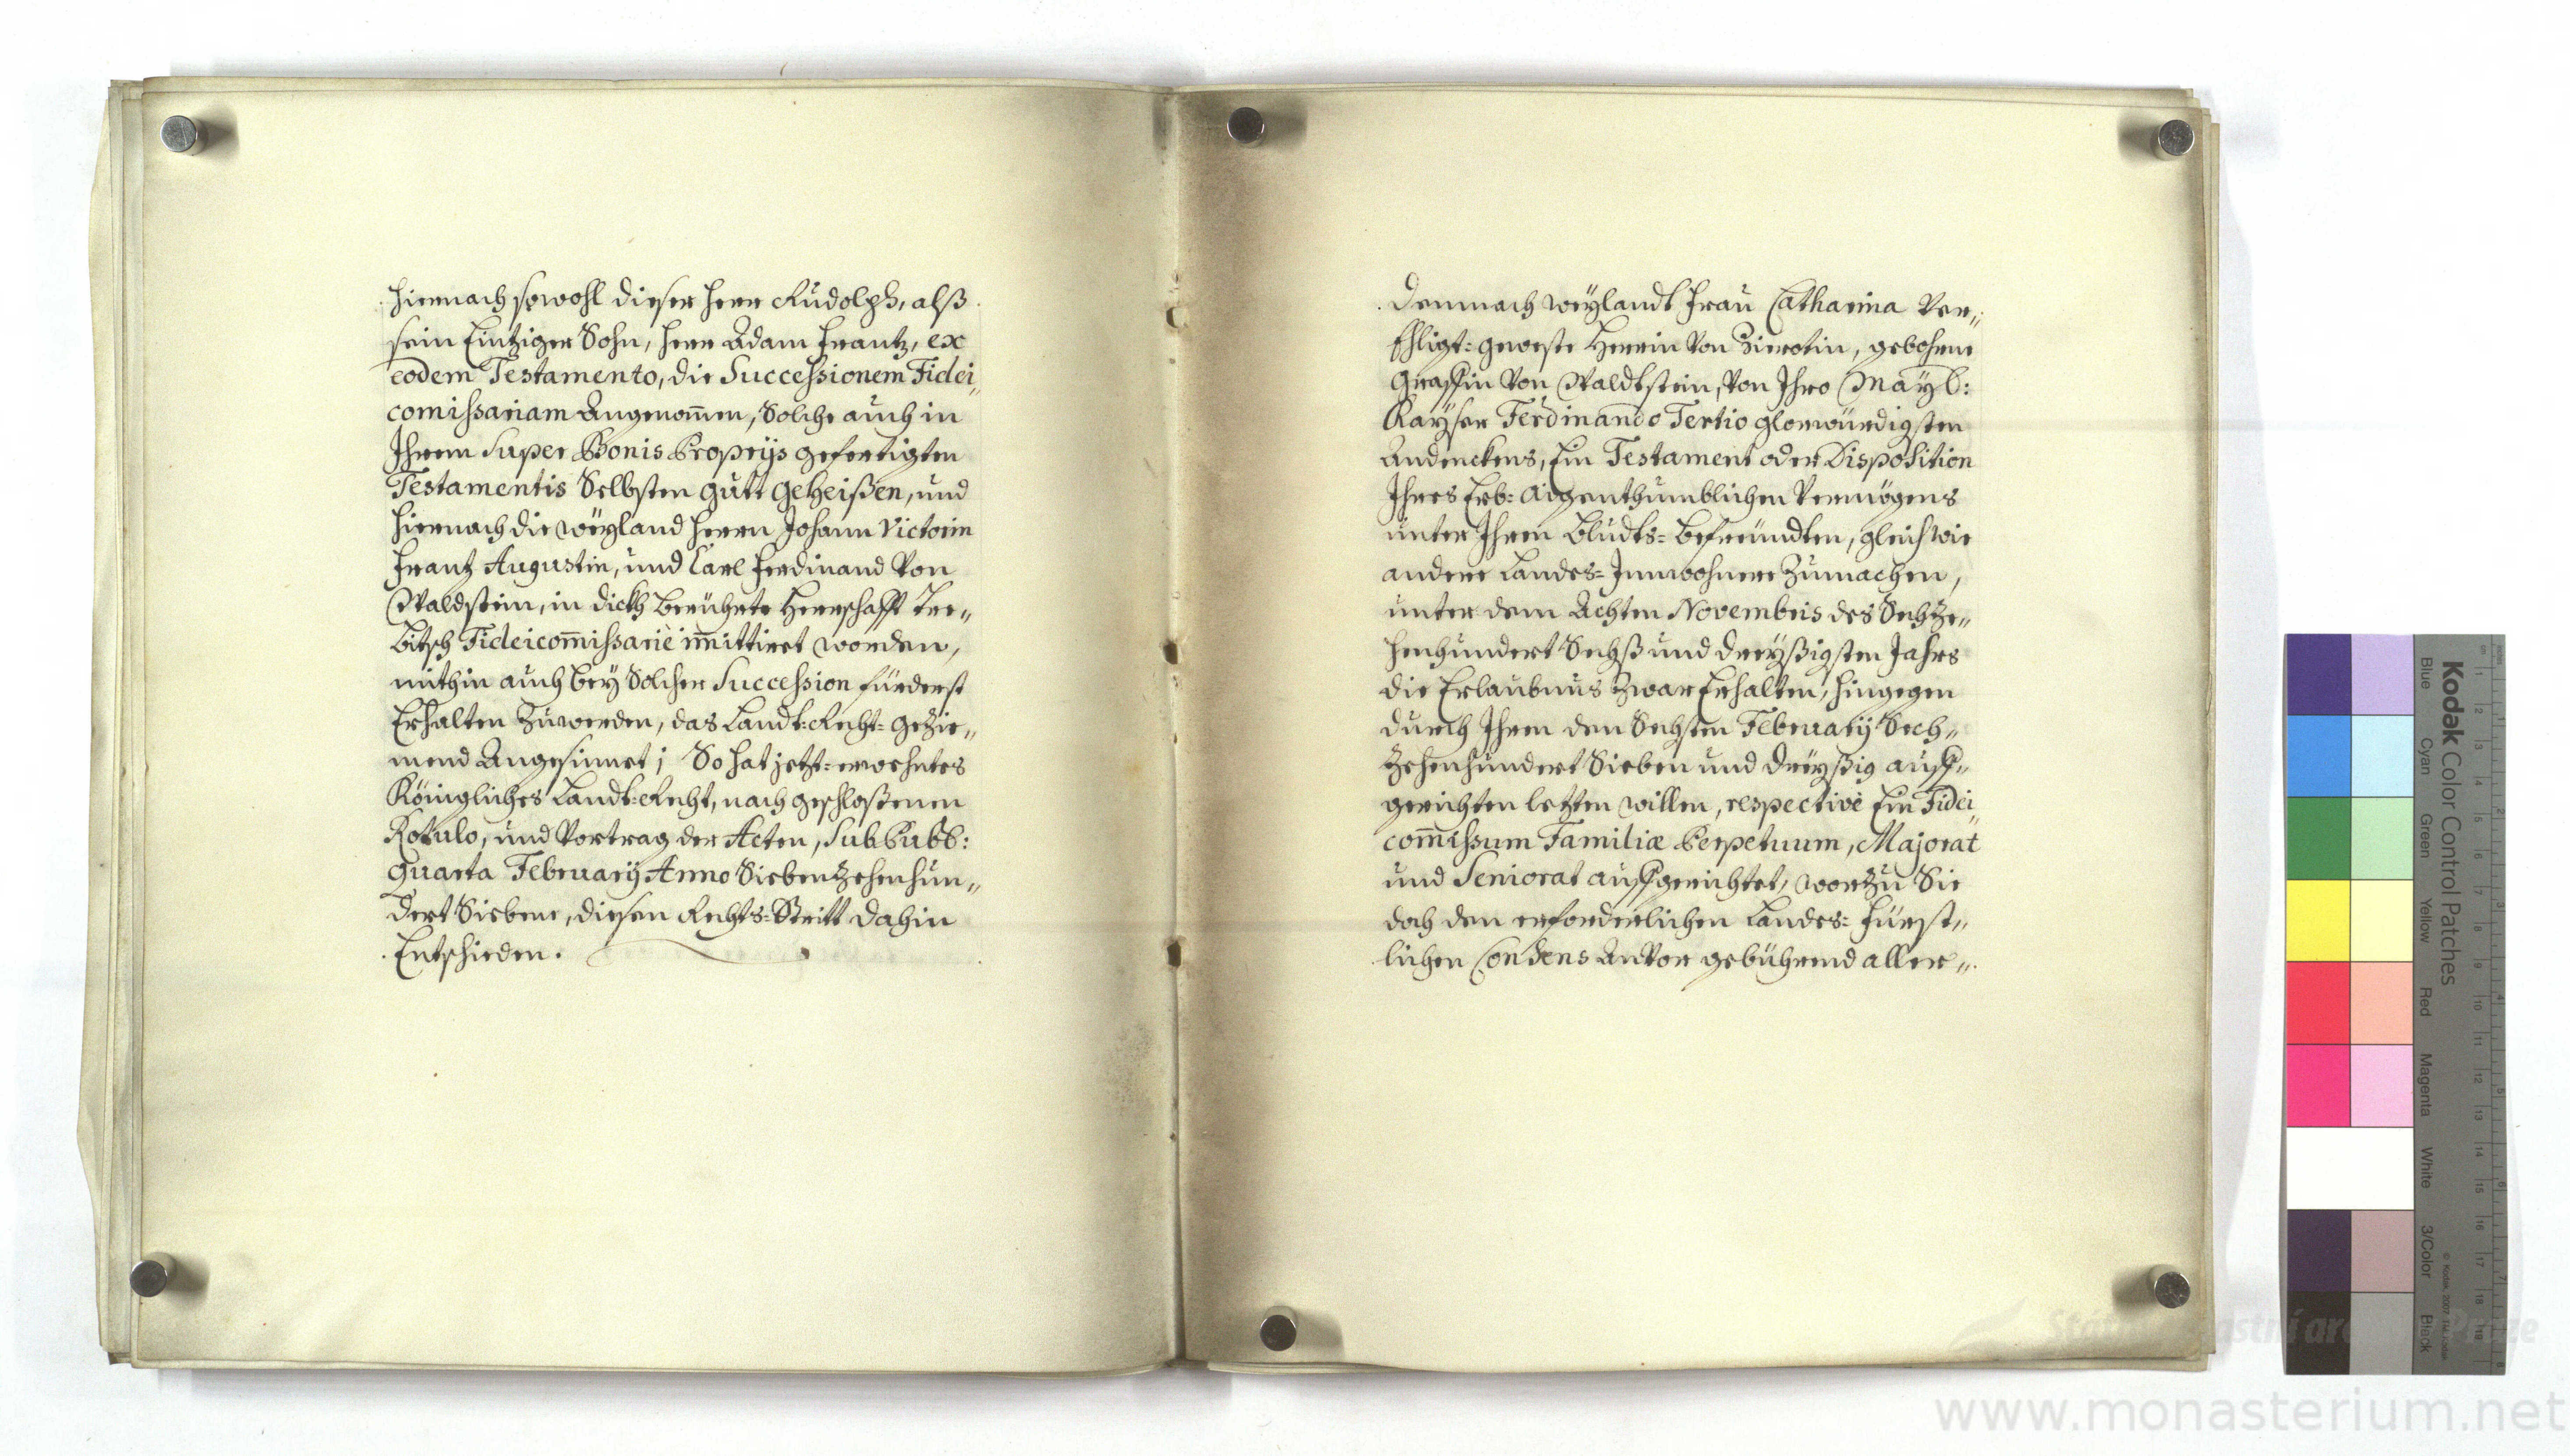 hiernach sowohl dieser Herr Rudolph, alß
sein Eintziger Sohn, Herr Adam Frantz, ex
eodem Testamento, die Successionem Fidei„
comissariam Angenom̄en, Solche auch in
Ihrem Super Bonis Proprijs gefertigten
Testamentis Selbsten gutt geheißen, und
hiernach die weyland Herrn Johann Victorin
Frantz Augustin, und Carl Ferdinand Von
Waldstein, in dickh berührte Herrschafft Tre„
bitsch Fideicom̄issarie im̄ittiret worden,
mithin auch bey Solcher Succession fürderst
Erhalten zuwerden, das Landt-Recht-gezie„
mend Angesinnet; So hat jetzt-erwehntes
Königliches Landt-Recht, nach geschloßenem
Rotulo, und Vortrag der Acten, Sub Pubb:
Quarta February Anno Siebenzehenhun„
dert Siebene, diesen Rechts-Stritt dahin
Entschieden.
Demnach weylandt Frau Catharina Ver„
Ehligt-geweste Herrin Von Zierotin, gebohrne
Graffin Von Waldtstein, Von Ihro Mayb:
Kayser Ferdinando Tertio glorwürdigsten
Andenckens, Ein Testament oder Disposition
Ihres Erb-aigenthumblichen Vermögens
unter Ihren Bludts-befreundten, gleich wie
andere Landes-Innwohnere zumachen,
unter dem Achten Novembris des Sechze„
henhundert Sechß und dreyßigsten Jahrs
die Erlaubnus zwar Erhalten, hingegen
durch Ihren den Sechsten February Sech„
zehenhundert Sieben und dreyßig auff„
gerichten letzten willen, respective Ein Fidei„
com̄issum Familiæ Perpetuum, Majorat
und Seniorat auffgerichtet, worzu Sie
doch den erforderlichen Landes-Fürst„
lichen Consens Anvor gebührend aller„
Kodak Color Control Patches
Blue
Cyan
Green
Yellow
Red
Magenta
White
3/Color
Black
www.monasterium.net